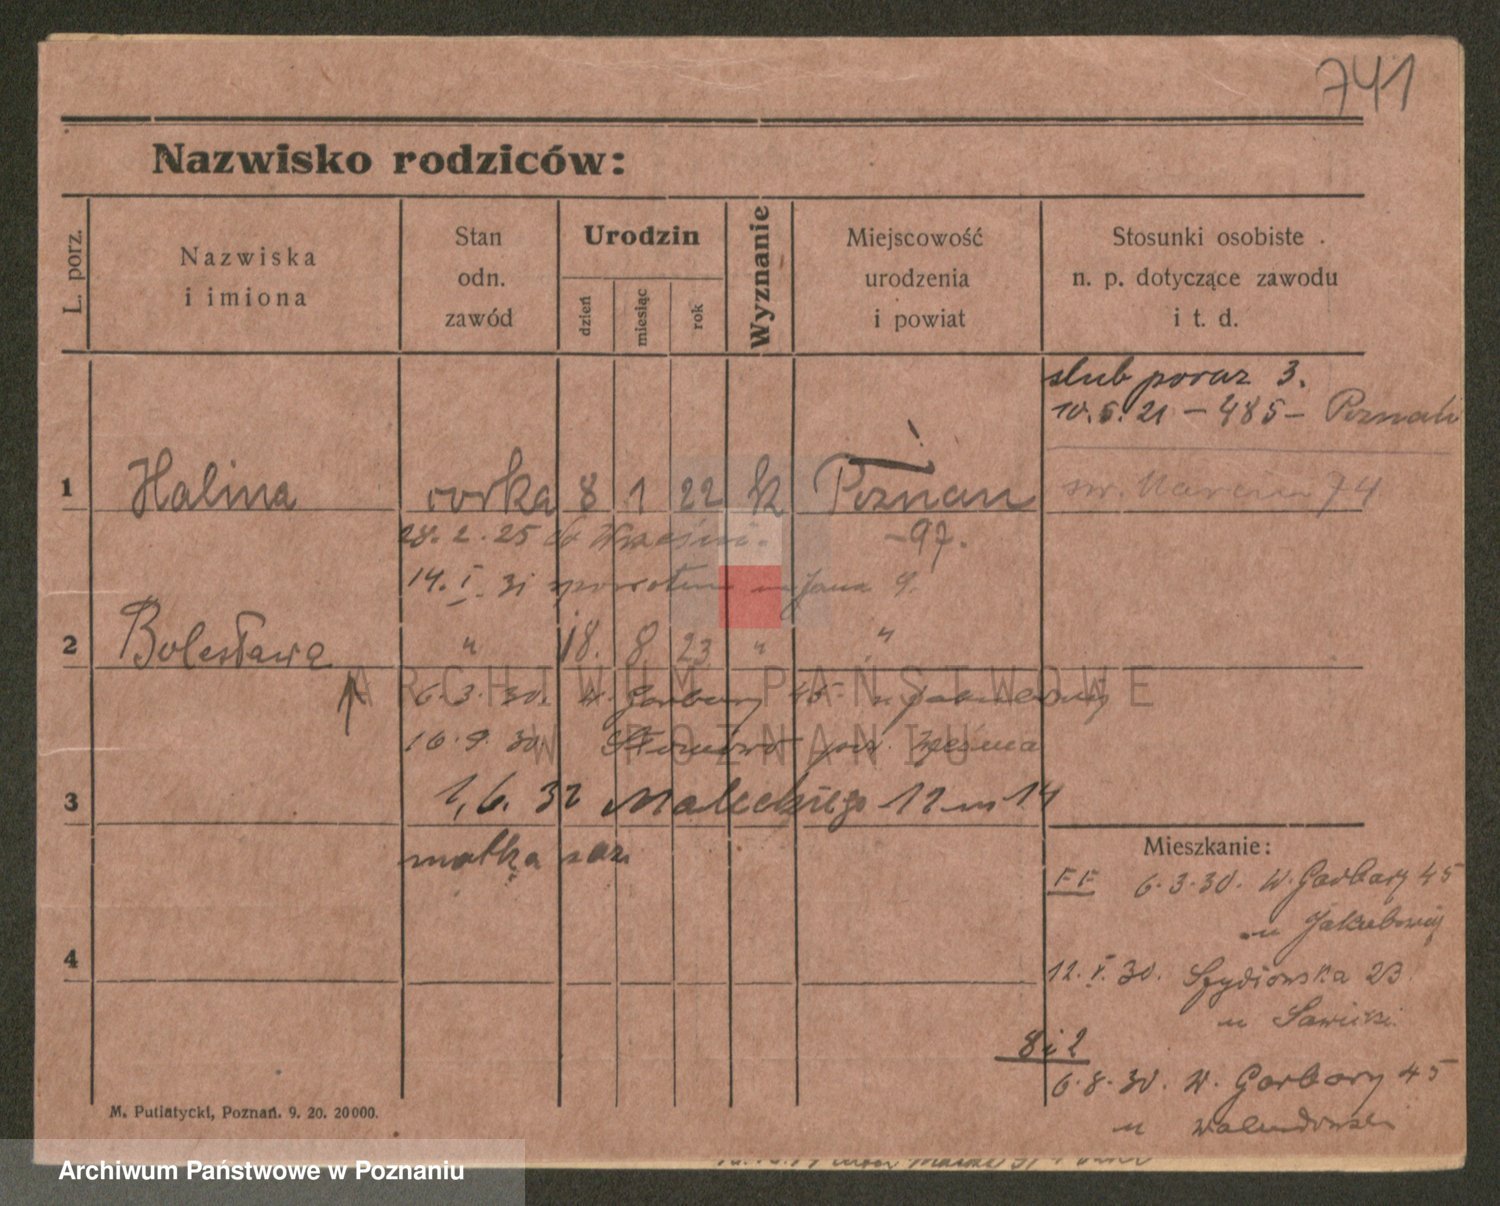 741
Nazwisko rodziców:
L. porz.
Nazwiska
i imiona
Stan
odn.
zawód
Urodzin
dzień
miesiąc
rok
Wyznanie
Miejscowość
urodzenia
i powiat
Stosunki osobiste
n. p. dotyczące zawodu
i t. d.
slub poraz 3.
10.5.21 - 485 - Poznań
1 Halina corka 8 1 22 k Poznań św. 74
28.2.25 do Wrześni. -97.
14. I. 31 spowrotem m Jana 9.
2 Bolesława " 18. 8 23 " "
6.3.30. W. Garbary 45
16.9.30. pow. Września
3 1,6. 32 Małeckiego 12 m 14
matka
Mieszkanie:
FF 6.3.30. W. Garbary 45
u
4 12. V. 30. 23
u Sawicki
8 i 2
6.8.30. W. Garbary 45
u
M. Putiatycki, Poznań. 9. 20. 20000.
ARCHIWUM PAŃSTWOWE
W POZNANIU
Archiwum Państwowe w Poznaniu